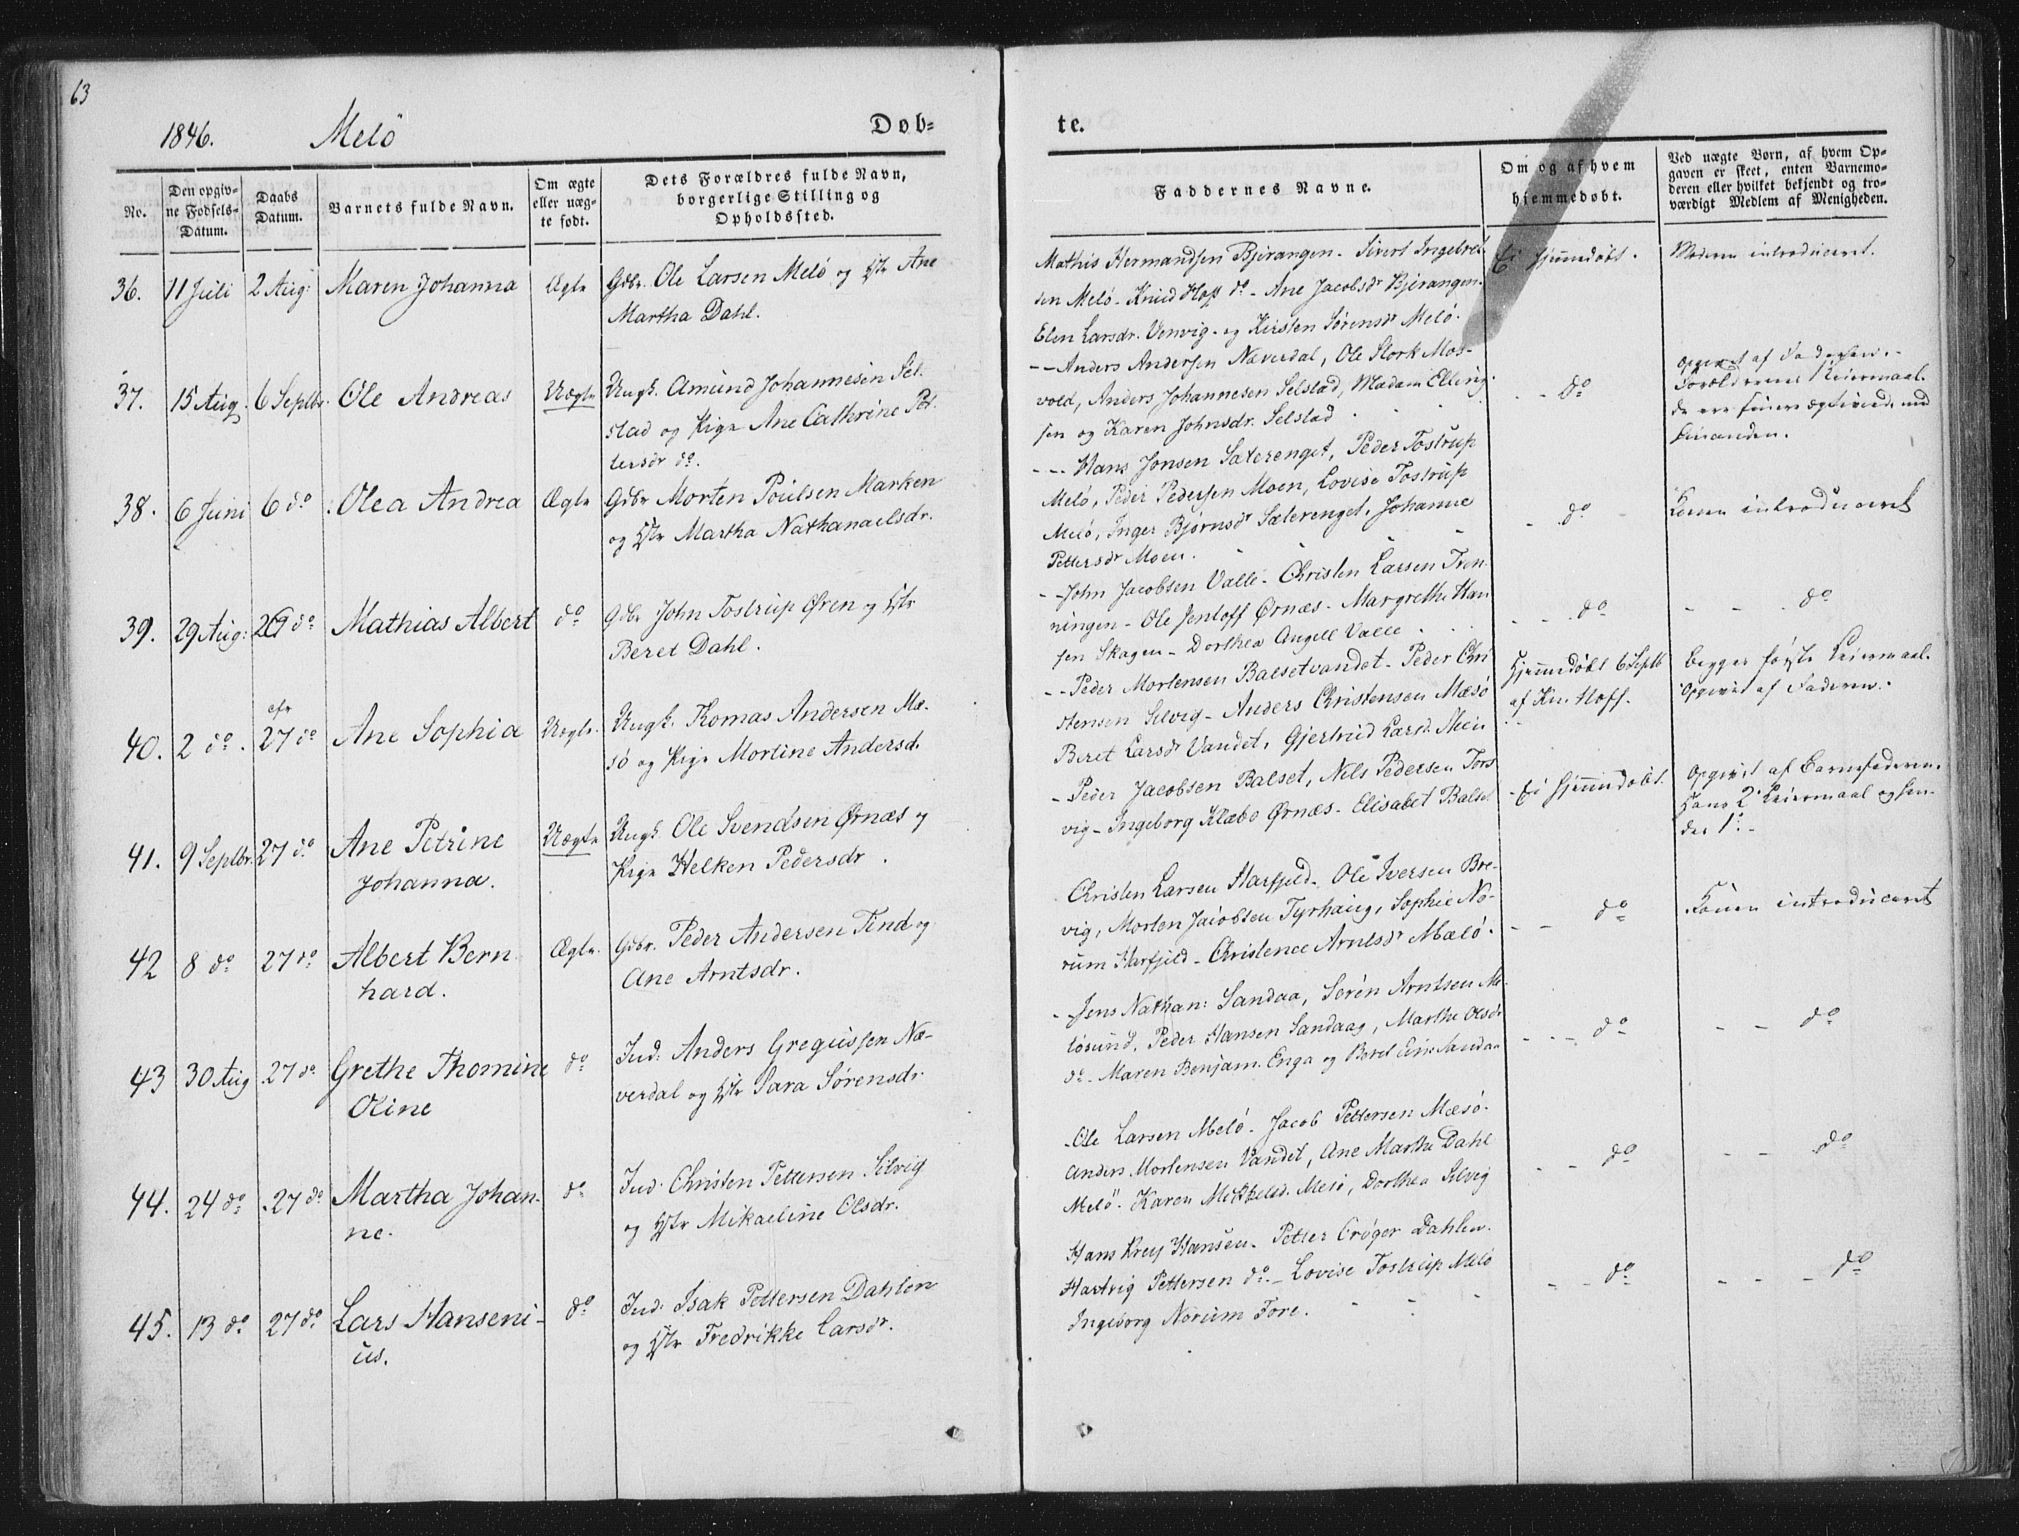 63
1846. Melö Döb=
No.
Den opgiv=
ne Fødsels=
Datum.
Daabs
Datum.
Barnets fulde Navn.
Om ægte
eller uæg=
te født.
Dets Forældres fulde Navn,
borgerlige Stilling og
Opholdssted.
36. 11 Juli 2 Aug: Maren Johanna Ægte Gdbr. Ole Larsen Melö og Ane
Martha Dahl.
37. 15 Aug. 6 Septbr. Ole Andreas Uægte Ungk. Amund Johannesen Sel-
stad og Pige Ane Cathrine Pet-
tersdr do.
38. 6 Juni 6 do Olea Andrea Ægte Gdbr Morten Poulsen Marken
og Martha Nathanaelsdr.
39. 29 Aug: 29 do Mathias Albert do Gdbr John Tostrup Øren og
Beret Dahl.
40. 2 do. 27 do Ane Sophia Uægte. Ungk. Thomas Andersen Mæ-
sö og Pige Mortine Andersd.
41. 9 Septbr. 27 do Ane Petrine Uægte Ungk. Ole Svendsen Ørnæs og
Johanna. Pige Helken Pedersdr.
42 8 do 27 do Albert Bern Ægte. Gdbr. Peder Andersen Tind og
hard. Ane Arntsdr.
43 30 Aug 27 do Grethe Thomine do Ind: Anders Gregussen Næ-
Oline verdal og Sara Sørensdr
44. 24 do 27 do Martha Johan- do Ind: Christen Pettersen Selvig
ne. og Mikaeline Olsdr.
45. 13 do 27 do Lars Hanseni- do Ind: Isak Pettersen Dahlen
us. og Fredrikke Larsdr.
te.
Faddernes Navne.
Om og af hvem
hjemmedøbt.
Ved uægte Børn, af hvem Op=
gaven er skeet, enten Barnemo=
deren eller hvilket bekjendt og tro=
værdigt Medlem af Menigheden.
Mathis Hermandsen Bjerangen - Sivert Ingebret- Ei hjemmedöbt. Moderen introduceret.
sen Melö - Knud Hoff do - Ane Jacobsdr Bjerangen.
Elen Larsdr. Venvig - og Kirsten Sørensdr Melö.
-- Anders Andersen Næverdal, Ole Stork Mos- opgivet af Faderen.
vold, Anders Johannesen Selstad, Madam Elling- do Forældrenes Leiermaal.
sen og Karen Johnsdr. Selstad
hinanden.
--- Hans Jonsen Sæterenget, Peder Tostrup
Melö, Peder Pedersen Moen, Lovise Tostrup do Konen introduceret
Melö, Inger Bjørnsdr Sæterenget, Johanne
Pettersdr Moen.
-- John Jacobsen Valle - Christen Larsen Tren
ningen - Ole Jentoff Ørnæs - Margrethe Han do do
sen Skagen - Dorthea Angell Valle
-- Peder Mortensen Balsetvandet - Peder Chri Hjemmedöbt 6 Septb Begges første Leiermaal.
stensen Selvig - Anders Christensen Mæsö af Kn. Hoff. Opgivet af Faderen.
Beret Larsdr Vandet, Gjertrud Larsd.
- Peder Jacobsen Balset, Nils Pedersen Tors Ei hjemmedöbt. Opgivet af Barnefaderen.
vig - Ingeborg Klæbo Ørnæs - Elisabet Balset Hans 2 Leiermaal og hen-
des 1.
Christen Larsen Harfjeld - Ole Iversen Bre-
vig, Morten Jacobsen Tyrhaug, Sophie No- do Konen introduceret
rum Harfjeld - Christence Arntsdr Mælö.
- Jens Nathan: Sandaa, Sørén Arntsen Me-
lösund, Peder Hansen Sandaag, Marthe Olsdr do do
do - Maren Benjam. Enga og Beret Sandaa
- Ole Larsen Melö - Jacob Pettersen Mæsö.
Anders Mortensen Vandet, Ane Martha Dahl do do
Melö. Karen Mikkelsd. Mesö, Dorthea Selvig
Hans Krey Hansen - Petter Crøger Dahlen.
Hartvig Pettersen do - Lovise Tostrup Melö do do
Ingeborg Norum Fore.